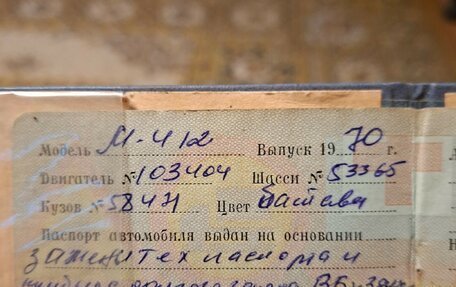 Модель М-412 Выпуск 1970 г.
Двигатель № 103404 Шасси № 53365
Кузов № 58471 Цвет
Паспорт автомобиля выдан на основании
замены тех паспорта и